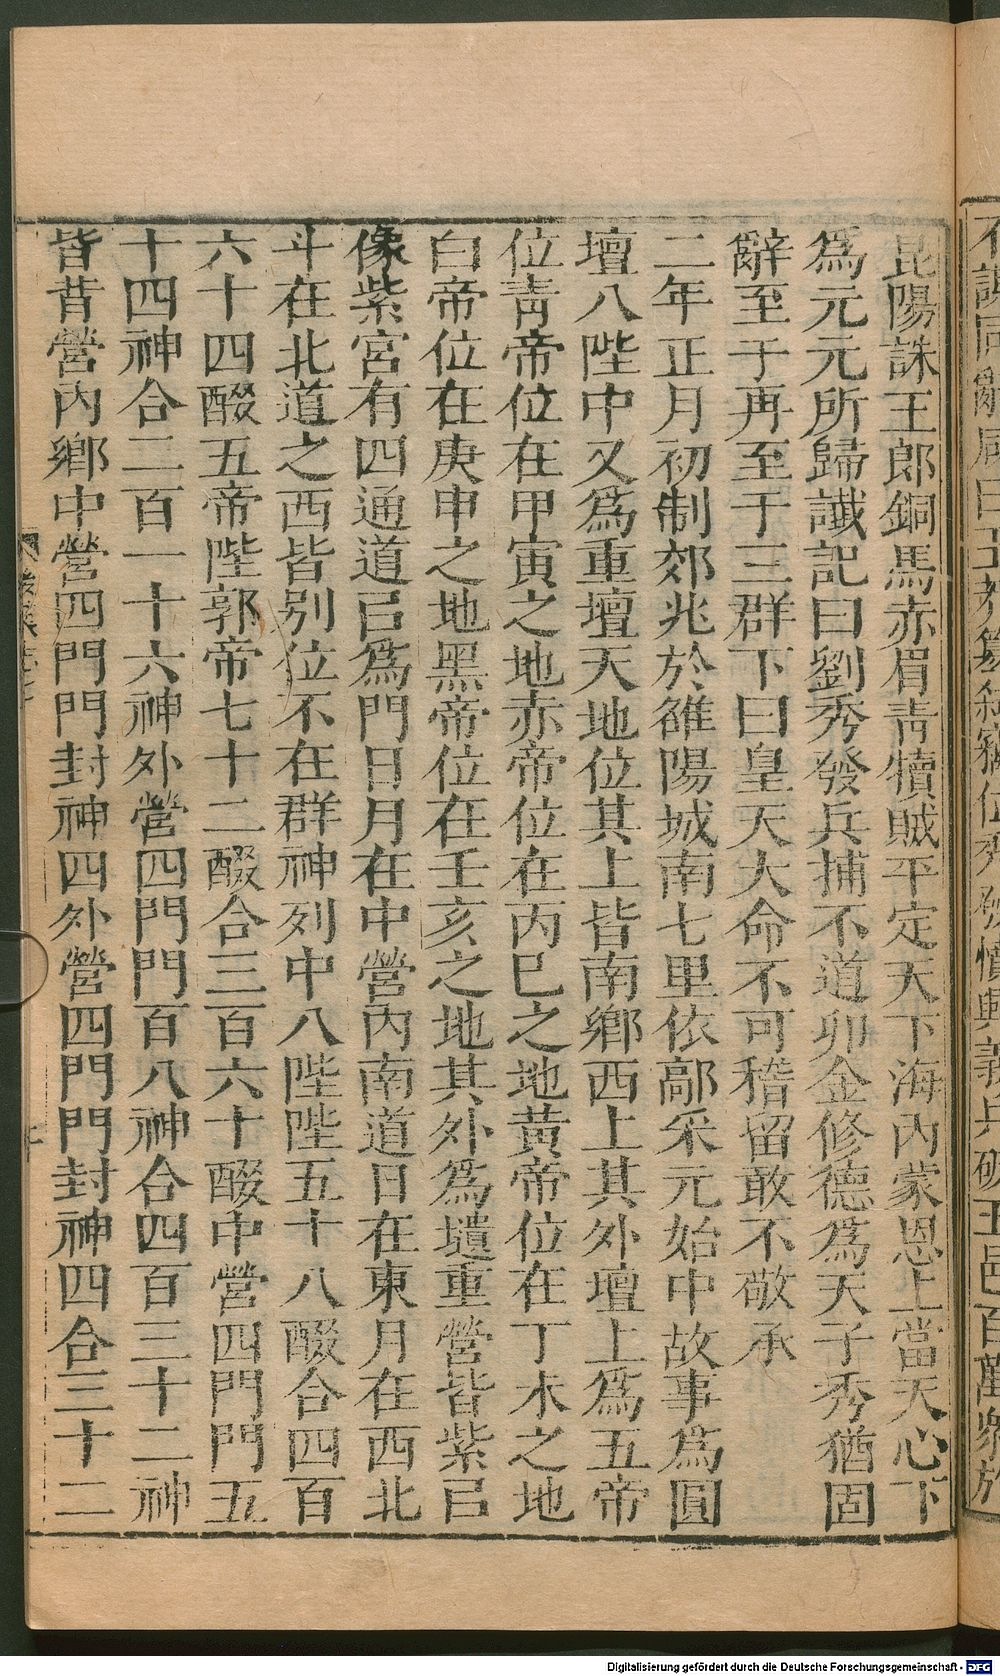 不謀同辭咸曰王莽篡弒竊位秀發憤興義兵破王邑百萬衆於
昆陽誅王郎銅馬赤眉青犢賊平定天下海內蒙恩上當天心下
爲元元所歸讖記曰劉秀發兵捕不道卯金修德爲天子秀猶固
辭至于再至于三群下曰皇天大命不可稽留敢不敬承
二年正月初制郊兆於雒陽城南七里依鄗采元始中故事爲圓
壇八陛中又爲重壇天地位其上皆南鄉西上其外壇上爲五帝
位青帝位在甲寅之地赤帝位在丙巳之地黃帝位在丁未之地
白帝位在庚申之地黑帝位在壬亥之地其外爲壝重營皆紫㠯
像紫宮有四通道㠯爲門日月在中營內南道日在東月在西北
斗在北道之西皆別位不在群神列中八陛陛五十八醊合四百
六十四醊五帝陛郭帝七十二醊合三百六十醊中營四門門五
十四神合二百一十六神外營四門門百八神合四百三十二神
皆背營內鄉中營四門門封神四外營四門門封神四合三十二
Digitalisierung gefördert durch die Deutsche Forschungsgemeinschaft - DFG